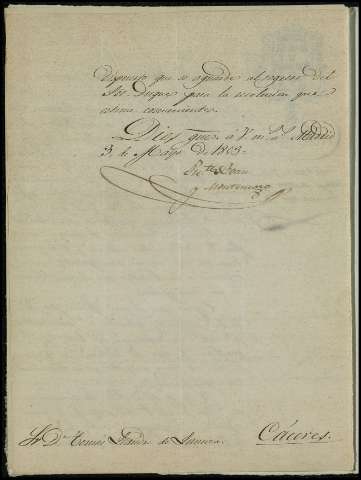 Dispuesto que se aguarde al regreso del
Sor. Duque para la resolucion que
estime conveniente.
Dios gue. a V. ms. as. Madrid
3, de Mayo de 1863.
y Montenegro
Sr. Dn. Tomas de
Cáceres.